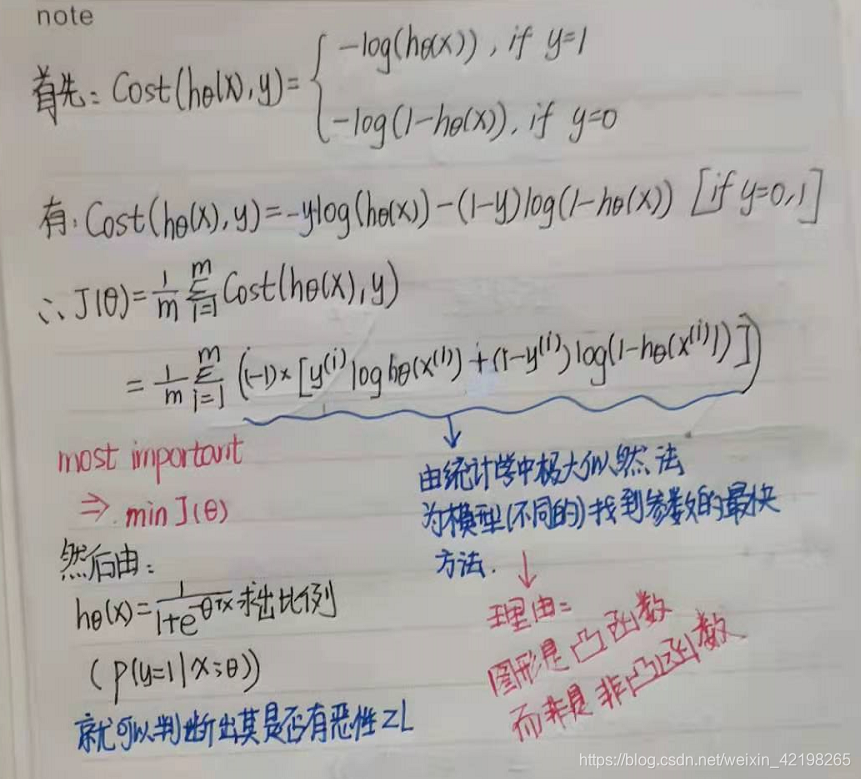 note
首先: Cost(hθ(x),y)= { -log(hθ(x)), if y=1
-log(1-hθ(x)), if y=0
有: Cost(hθ(x),y)=-ylog(hθ(x))-(1-y)log(1-hθ(x)) [if y=0,1]
∴ J(θ)=1/m Σ_{i=1}^{m} Cost(hθ(x),y)
=1/m Σ_{i=1}^{m} ((-1)×[y^(i) log hθ(x^(i))+(1-y^(i))log(1-hθ(x^(i)))])
most important
⇒ min J(θ)
由统计学中极大似然法
为模型(不同的)找到参数的最快
方法.
理由:
图形是凸函数
而非是非凸函数
然后由:
hθ(x)=1/(1+e^{-θᵀx}) 求出比例
(P(y=1|x;θ))
就可以判断出其是否有恶性ZL
https://blog.csdn.net/weixin_42198265